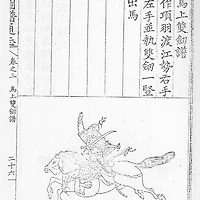 馬上雙劒譜
作項羽渡江勢右手
左手並執雙劒一竪
出馬
圖譜通志 卷之三 馬上雙劒譜 二十六